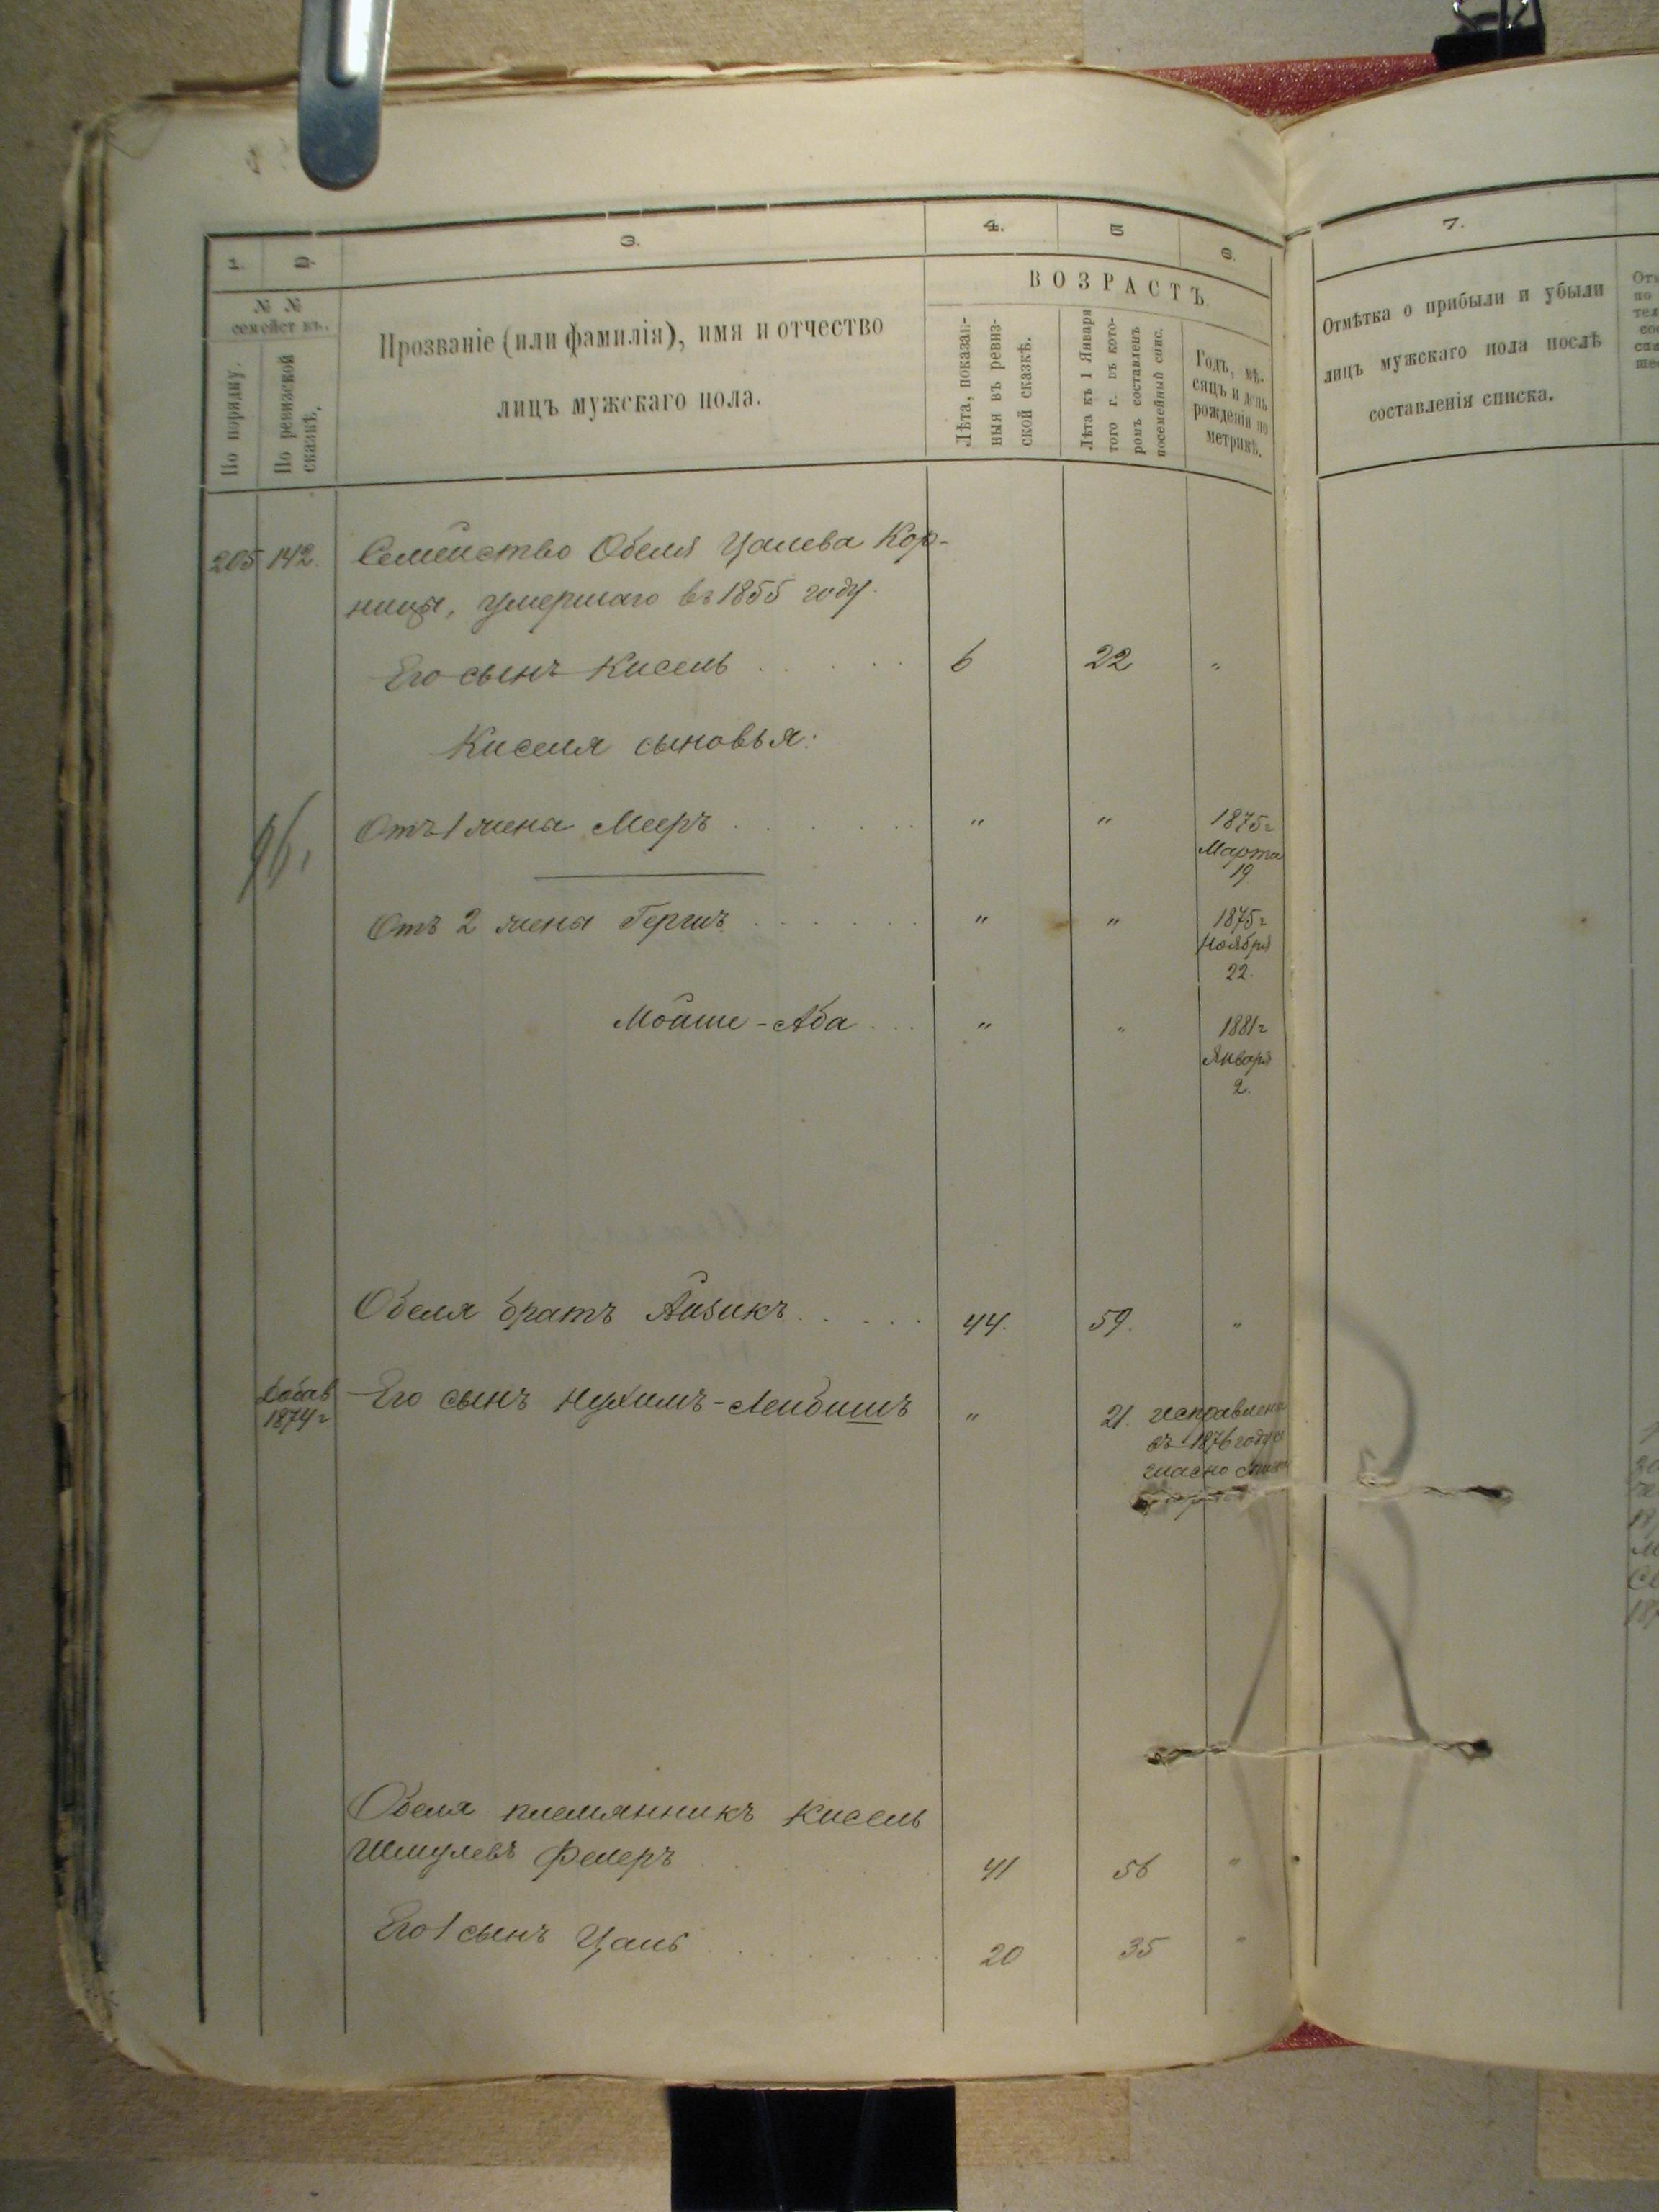 1. 2. 3. 4. 5 6. 7.
№ №
семействъ.
По порядку.
По ревизской сказкѣ.
Прозваніе (или фамилія), имя и отчество
лицъ мужскаго пола.
ВОЗРАСТЪ.
Лѣта, показан-
ныя въ ревиз-
ской сказкѣ.
Лѣта къ 1 Января
того г. въ кото-
ромъ составленъ
посемейный спис.
Годъ, мѣ-
сяцъ и день
рожденія по
метрикѣ.
Отмѣтка о прибыли и убыли
лицъ мужскаго пола послѣ
составленія списка.
205 142. Семейство Обеля Цалева Кор-
ница, умершаго въ 1855 году.
Его сынъ Кисель . . . . . 6 22 "
Киселя сыновья:
Отъ 1 жены Мееръ . . . . . . " " 1875 г
Марта
19
Отъ 2 жены Гершъ . . . . . . " " 1875 г
Ноября
22.
Мойше-Аба . . . " " 1881 г
Января
2.
Обеля братъ Айзикъ . . . . . 44. 59. "
Добав
1874 г
Его сынъ Нухимъ-Лейбишъ " 21. исправлена
въ 1876 году со
гласно
Обеля племянникъ Кисель
Шмулевъ Фелеръ . . . . . 41 56 "
Его 1 сынъ Цаль . . . . . . . 20 35 "